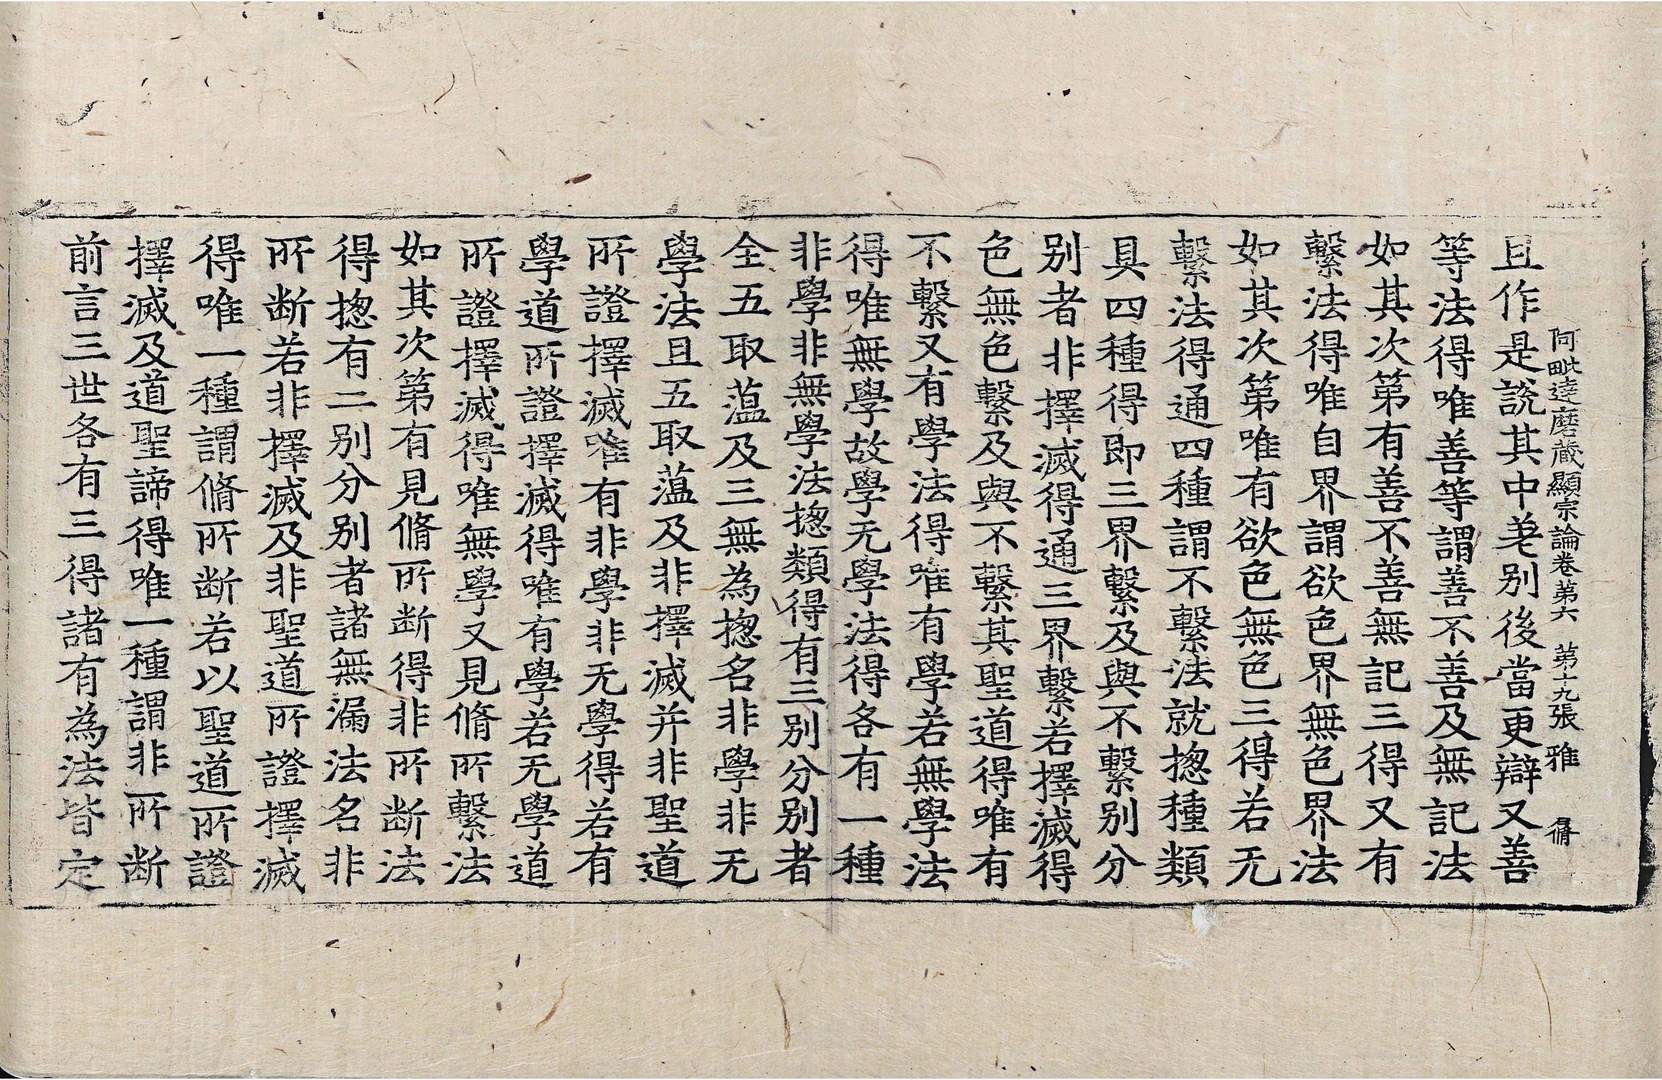 阿毗達磨藏顯宗論卷第六 第十九張 雅 脩
且作是說其中差别後當更辯又善
等法得唯善等謂善不善及無記法
如其次第有善不善無記三得又有
繫法得唯自界謂欲色界無色界法
如其次第唯有欲色無色三得若无
繫法得通四種謂不繫法就揔種類
具四種得即三界繫及與不繫别分
别者非擇滅得通三界繫若擇滅得
色無色繫及與不繫其聖道得唯有
不繫又有學法得唯有學若無學法
得唯無學故學无學法得各有一種
非學非無學法揔類得有三别分别者
全五取蕰及三無為揔名非學非无
學法且五取蕰及非擇滅并非聖道
所證擇滅唯有非學非无學得若有
學道所證擇滅得唯有學若无學道
所證擇滅得唯無學又見脩所繫法
如其次第有見脩所断得非所断法
得揔有二别分别者諸無漏法名非
所断若非擇滅及非聖道所證擇滅
得唯一種謂脩所断若以聖道所證
擇滅及道聖諦得唯一種謂非所断
前言三世各有三得諸有為法皆定